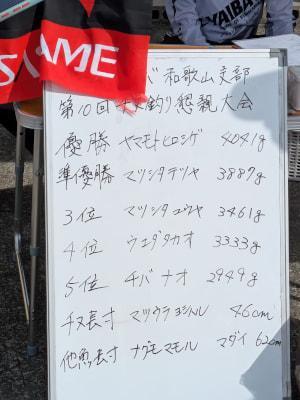 AME
YAIBA
バ 和歌山支部
第10回 チヌ釣り懇親大会
優勝 ヤマモトヒロシゲ 4041g
準優勝 マツシタテツヤ 3887g
3位 マツシタユウヤ 3461g
4位 ウエダタカオ 3333g
5位 チバナオ 2949g
チヌ長寸 マツウラヨシハル 46cm
他魚長寸 ナグモマモル マダイ 62cm